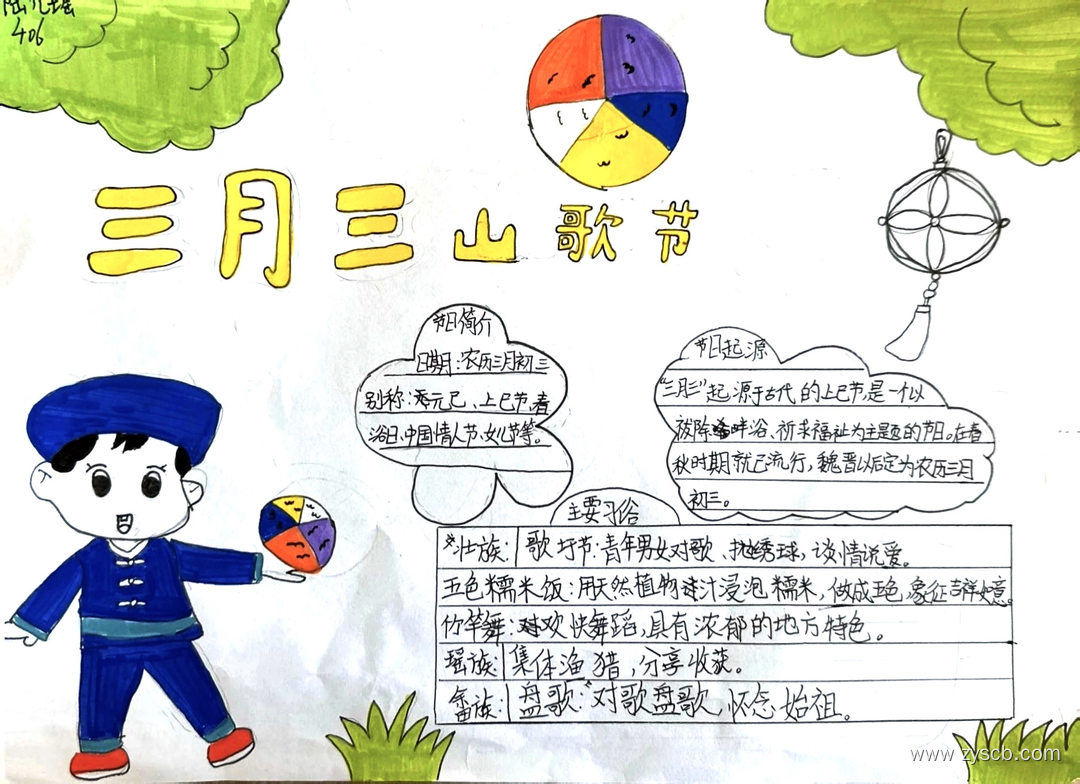 406
三月三山歌节
节日简介
日期:农历三月初三
别称:元巳、上巳节,春
浴日、中国情人节、女儿节等。
节日起源
"三月三"起源于古代的上巳节,是一个以
祓除畔浴、祈求福祉为主题的节日。在春
秋时期就已流行,魏晋以后定为农历三月
初三。
主要习俗
壮族:歌圩节:青年男女对歌、抛绣球,谈情说爱。
五色糯米饭:用天然植物汁浸泡糯米,做成五色,象征吉祥如意。
竹竿舞:欢快舞蹈,具有浓郁的地方特色。
瑶族:集体渔猎,分享收获。
畲族:盘歌:对歌盘歌,怀念始祖。
www.zyscb.com